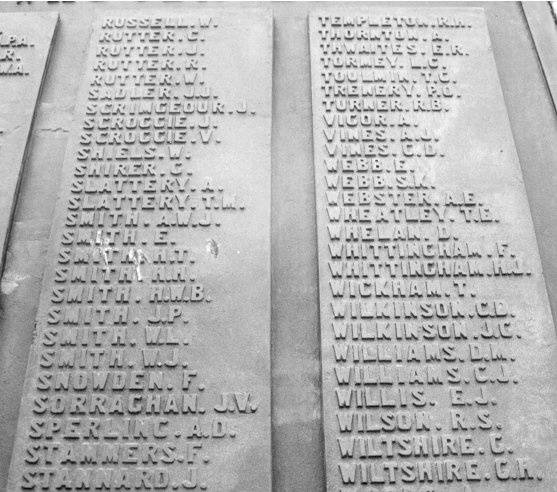 PA.
R.
W.A.
RUSSELL.W.
RUTTER.C.
RUTTER.J.
RUTTER.R.
RUTTER.W.
SADLER.J.J.
SCRINGEOUR.J.
SCROGGIE.J.
SCROGGIE.V.
SHIELS.W.
SHIRER.G.
SLATTERY.A.
SLATTERY.T.M.
SMITH.A.W.J.
SMITH.E.
SMITH.H.T.
SMITH.H.H.
SMITH.H.W.B.
SMITH.J.P.
SMITH.W.L.
SMITH.W.J.
SNOWDEN.F.
SORRAGHAN.J.V.
SPERLING.A.D.
STAMMERS.F.
STANNARD.J.
TEMPLETON.R.H.
THORNTON.A.
THWAITES.E.R.
TORMEY.L.C.
TOULMIN.T.C.
TRENERY.P.O.
TURNER.R.B.
VIGOR.A.
VINES.A.J.
VINES.C.D.
WEBB.E.
WEBB.S.M.
WEBSTER.A.E.
WHEATLEY.T.E.
WHELAN.D.
WHITTINGHAM.F.
WHITTINGHAM.H.J.
WICKHAM.T.
WILKINSON.C.D.
WILKINSON.J.G.
WILLIAMS.D.M.
WILLIAMS.C.J.
WILLIS.E.J.
WILSON.R.S.
WILTSHIRE.C.
WILTSHIRE.G.H.